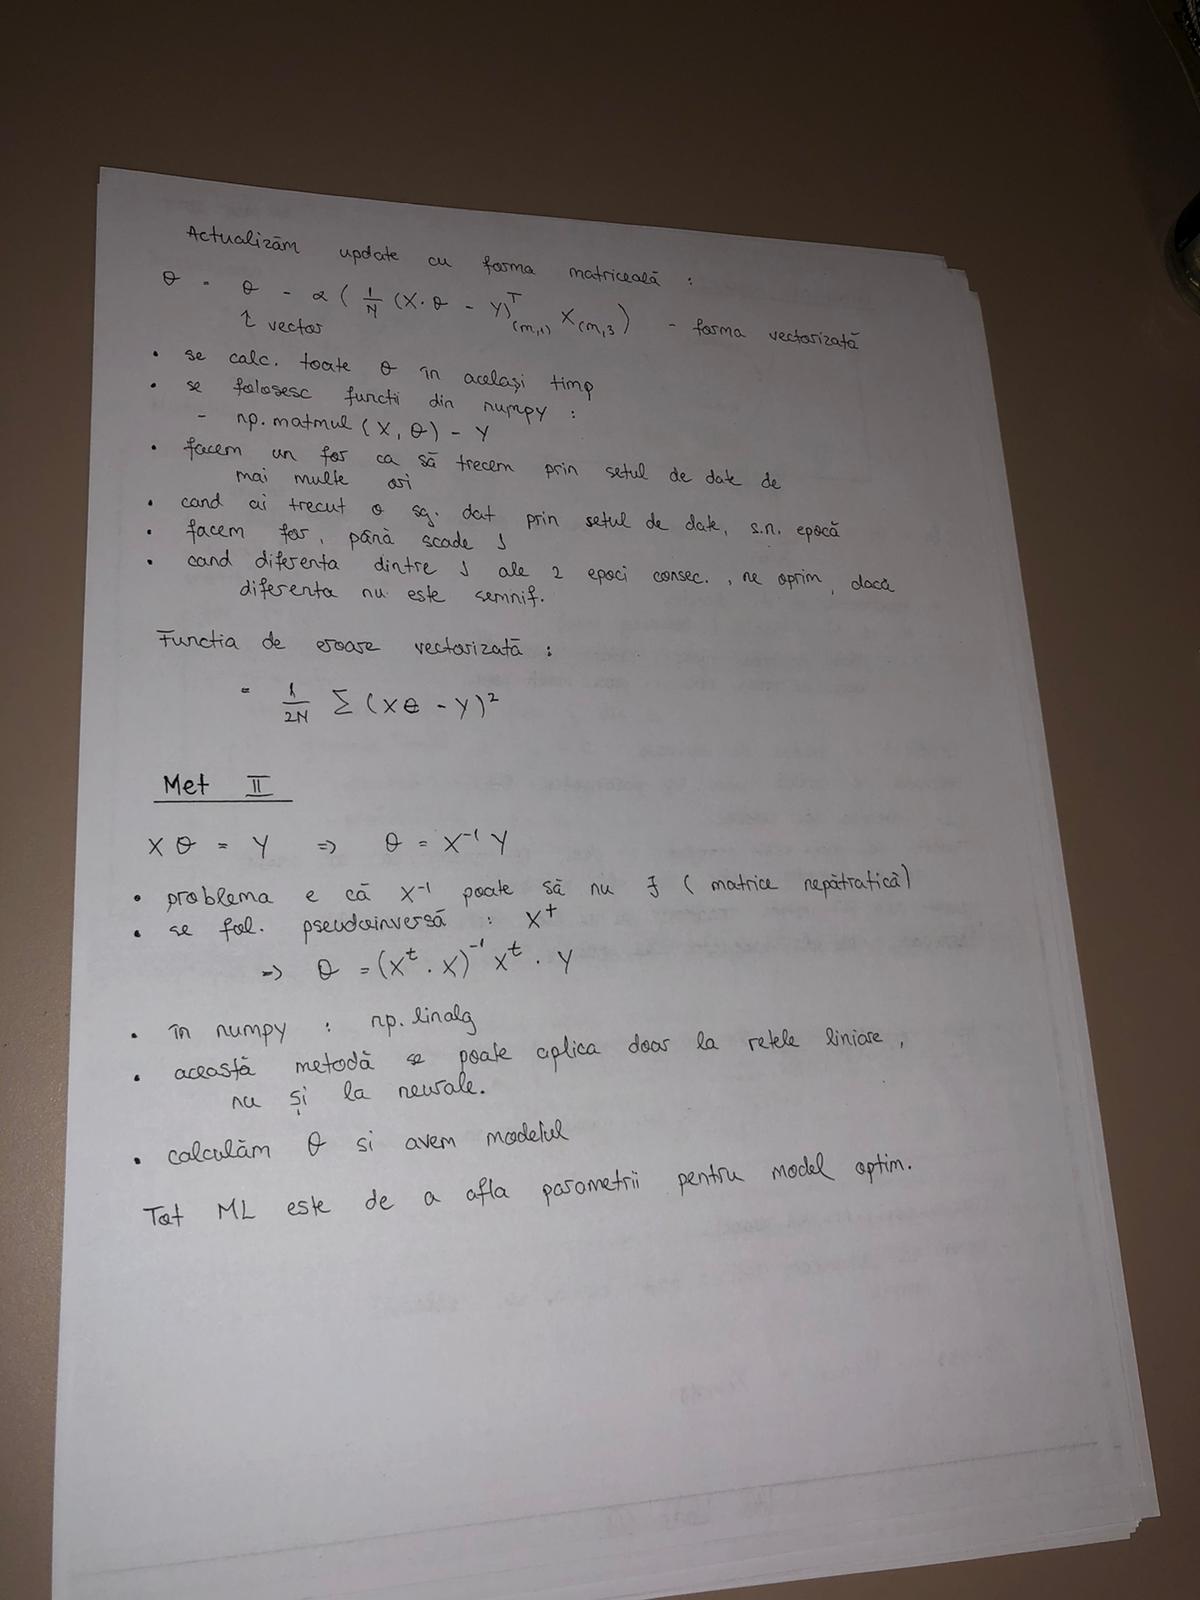 Actualizăm update cu forma matriceală :
θ = θ - α ( 1/N (X·θ - Y)ᵀ(m,1) X(m,3) ) - forma vectorizată
↑ vector
• se calc. toate θ în același timp
• se folosesc functii din numpy :
- np.matmul (X, θ) - Y
• facem un for ca să trecem prin setul de date de
mai multe ori
• cand ai trecut o sg. dat prin setul de date, s.n. epocă
• facem for, până scade J
• cand diferenta dintre J ale 2 epoci consec., ne oprim, dacă
diferenta nu este semnif.
Functia de eroare vectorizată :
= 1/2N Σ (Xθ - Y)²
Met II
X θ = Y => θ = X⁻¹ Y
• problema e că X⁻¹ poate să nu ∃ ( matrice nepătratică)
• se fol. pseudoinversă : X⁺
=> θ = (Xᵗ · X)⁻¹ Xᵗ · Y
• în numpy : np.linalg
• această metodă se poate aplica doar la retele liniare,
nu și la neurale.
• calculăm θ si avem modelul
Tot ML este de a afla parametrii pentru model optim.